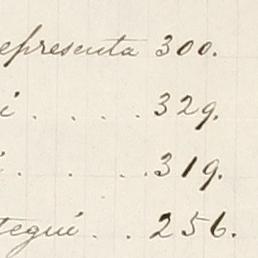 epresenta 300.
i . . . . . 329.
i . . . . 319.
tegui . . 256.